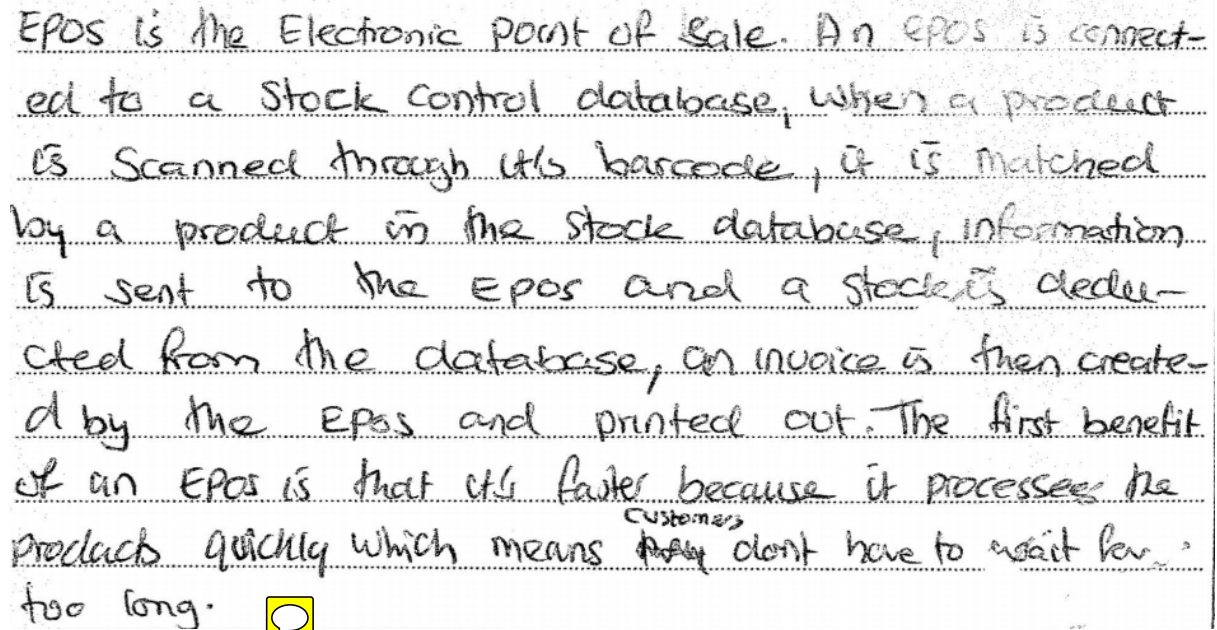 EPOS is the Electronic point of Sale. An EPOS is connect-
ed to a stock control database, when a product
is Scanned through it's barcode, it is matched
by a product in the stock database, information
is sent to the EPOS and a stock is dedu-
cted from the database, an invoice is then create-
d by the EPOS and printed out. The first benefit
of an EPOS is that it's faster because it processes the
customers
products quickly which means don't have to wait for
too long.